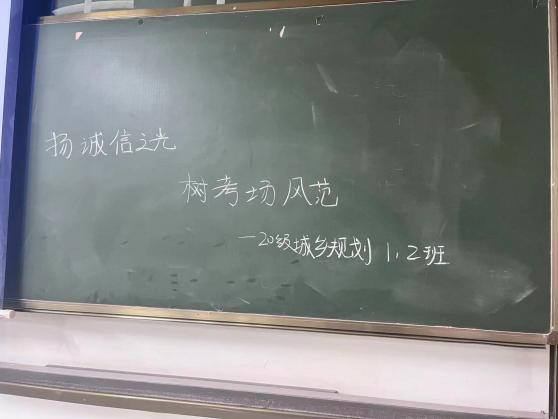 扬诚信之光
树考场风范
—20级城乡规划1,2班